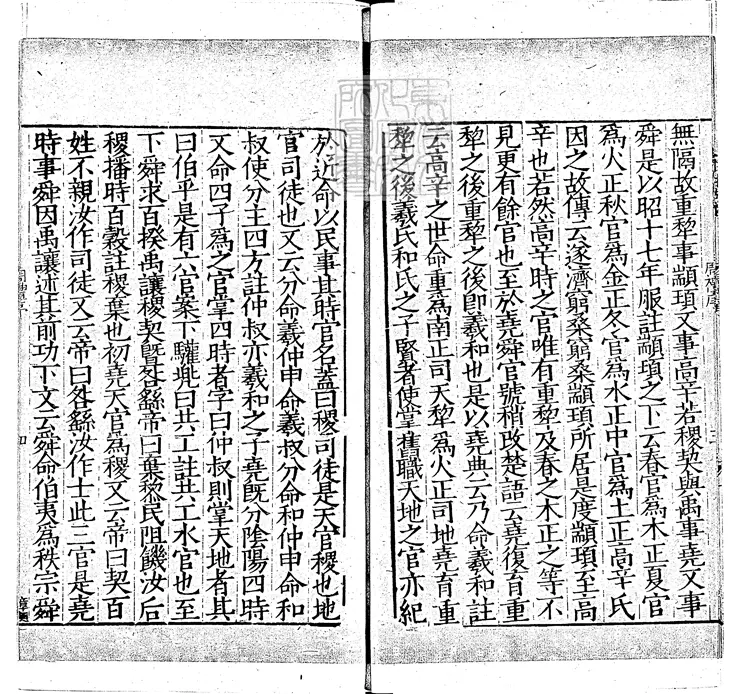 無隔故重犂事顓頊又事高辛若稷契與禹事堯又事
舜是以昭十七年服註顓頊之下云春官爲木正夏官
爲火正秋官爲金正冬官爲水正中官爲土正高辛氏
因之故傳云遂濟窮桑窮桑顓頊所居是度顓頊至高
辛也若然高辛時之官唯有重犂及春之木正之等不
見更有餘官也至於堯舜官號稍改楚語云堯復育重
犂之後重犂之後卽羲和也是以堯典云乃命羲和註
云高辛之世命重爲南正司天犂爲火正司地堯育重
犂之後羲氏和氏之子賢者使掌舊職天地之官亦紀
於近命以民事其時官名蓋曰稷司徒是天官稷也地
官司徒也又云分命羲仲申命羲叔分命和仲申命和
叔使分主四方註仲叔亦羲和之子堯旣分陰陽四時
又命四子爲之官掌四時者字曰仲叔則掌天地者其
曰伯乎是有六官案下驩兜曰共工註共工水官也至
下舜求百揆禹讓稷契曁咎繇帝曰棄黎民阻饑汝后
稷播時百穀註稷棄也初堯天官爲稷又云帝曰契百
姓不親汝作司徒又云帝曰咎繇汝作士此三官是堯
時事舜因禹讓述其前功下文云舜命伯夷爲秩宗舜